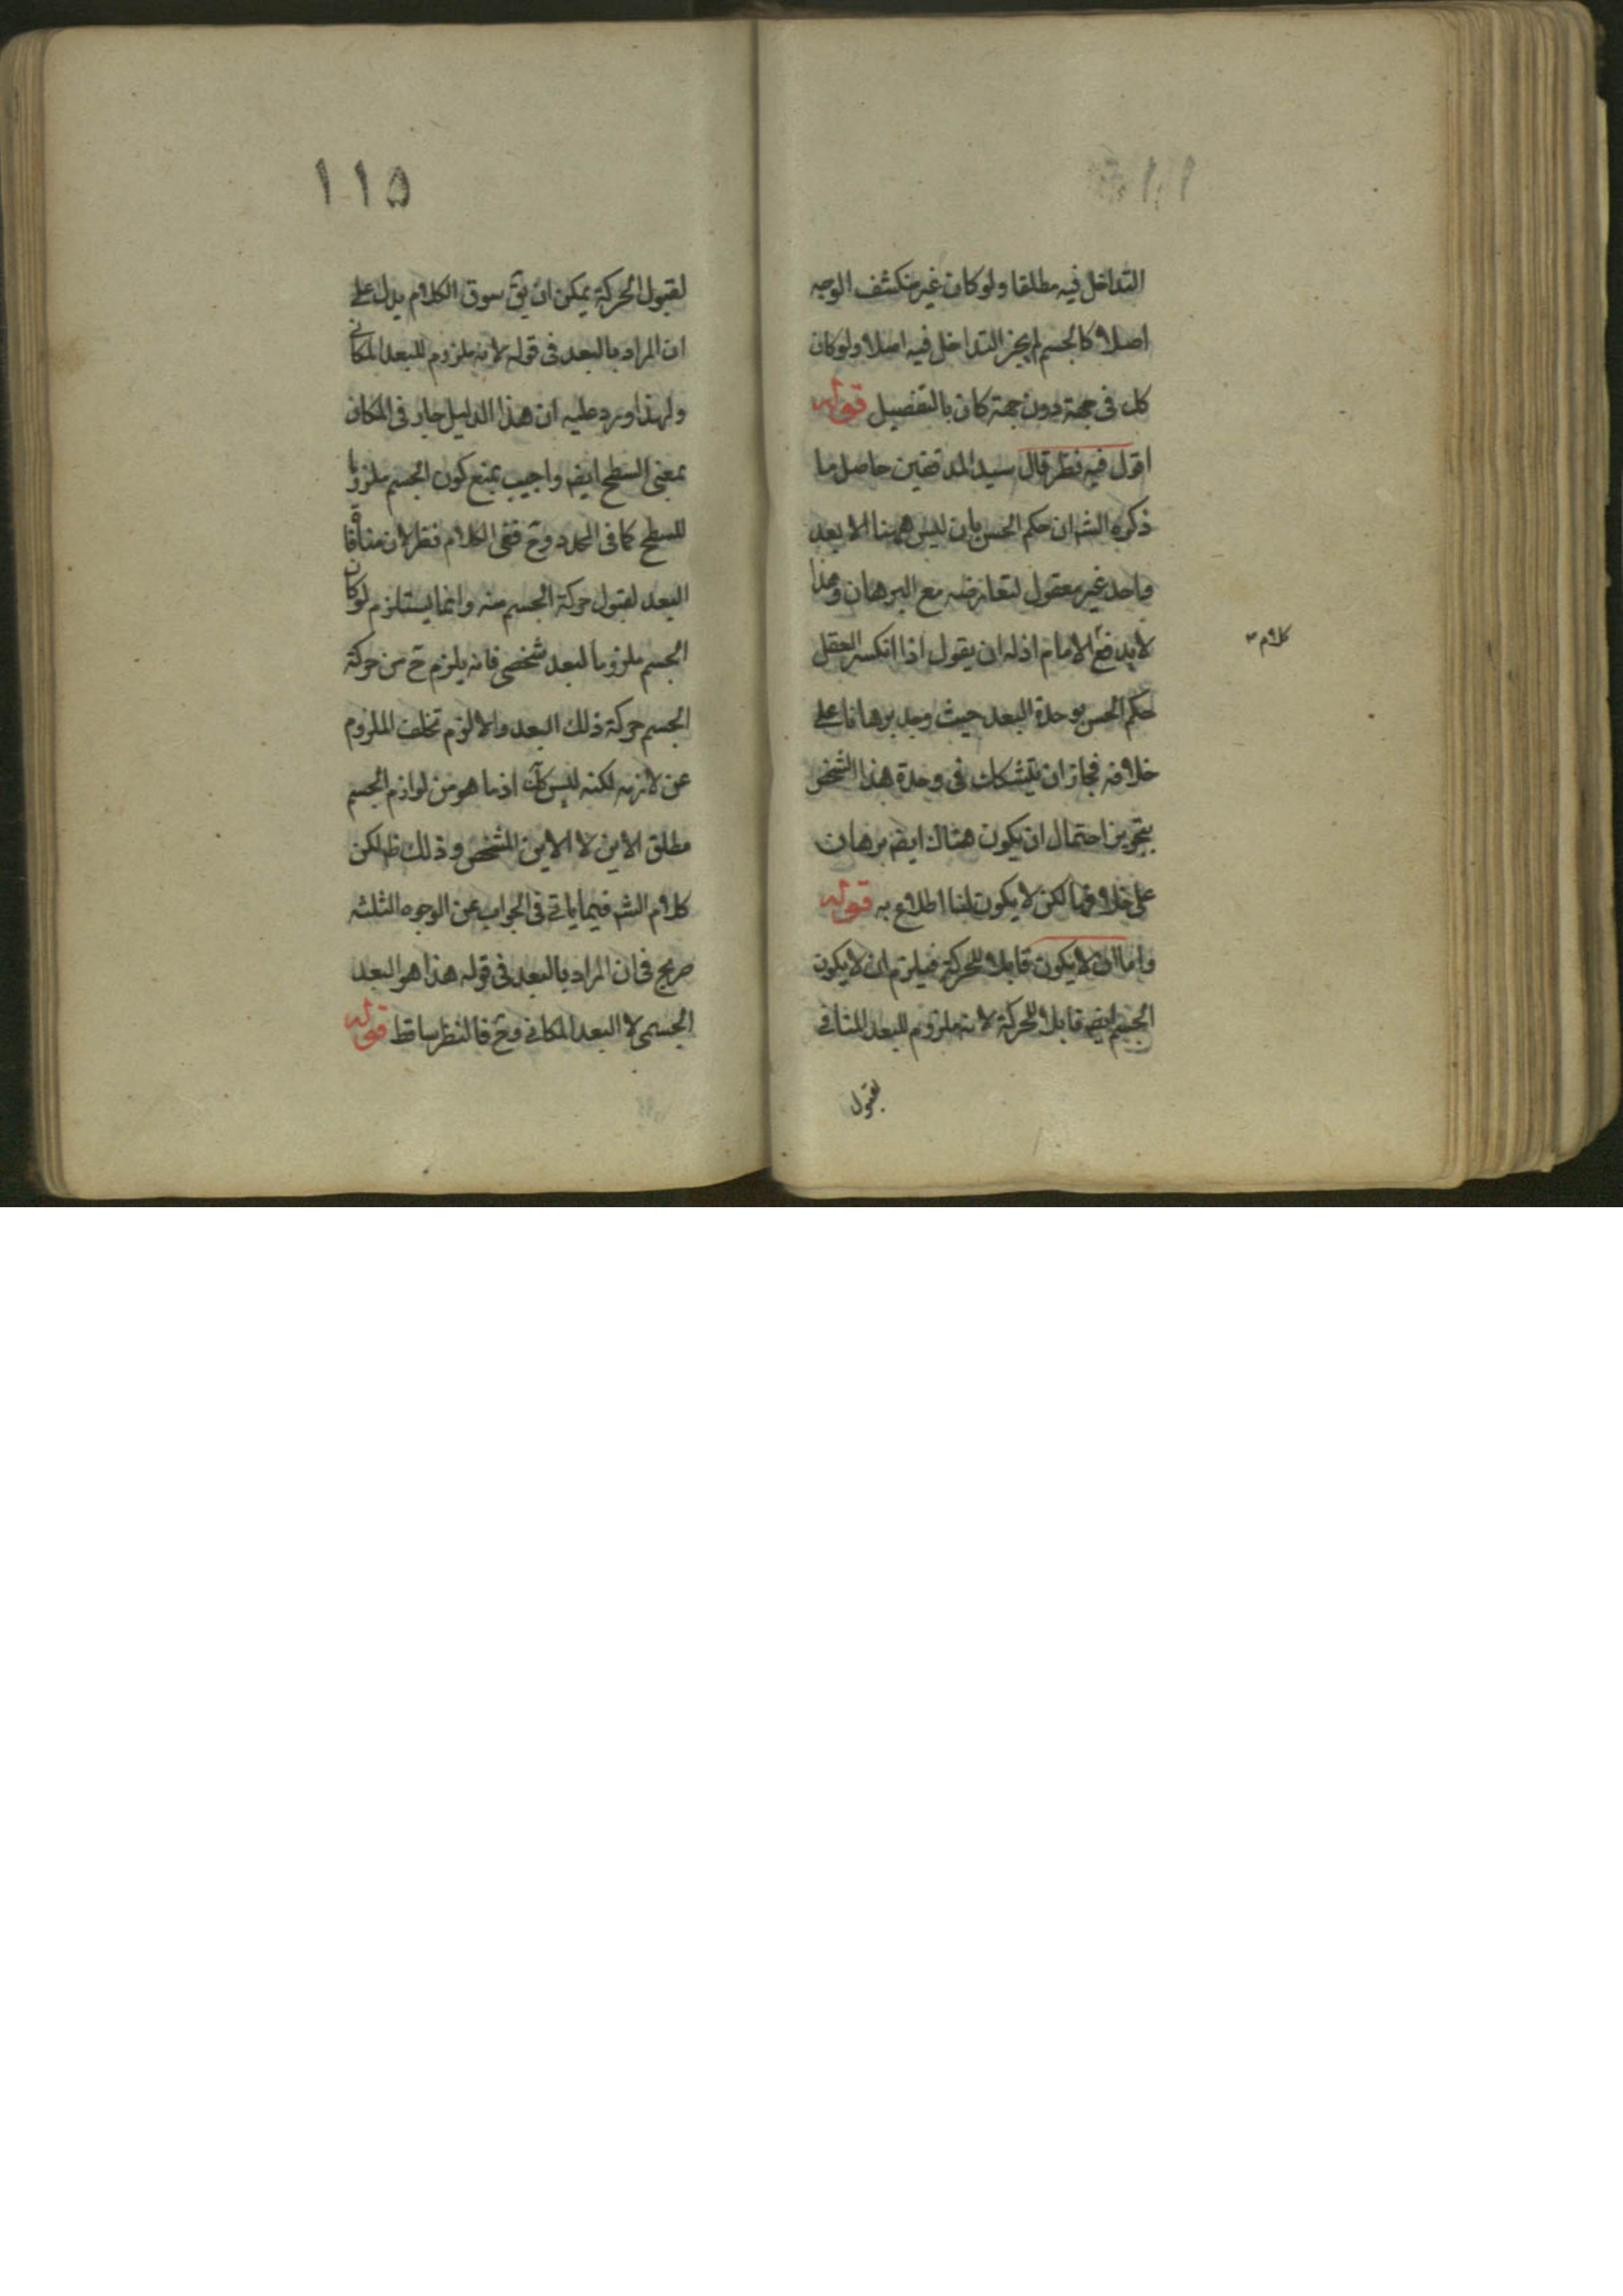 التداخل فيه مطلقا ولو كان غير منكشف الوجه
اصلا كالجسم لم يجز التداخل فيه اصلا ولو كان
كل فى جهة دون جهة كان بالتفصيل قوله
اقول فيه نظر قال سيد المدققين حاصل ما
ذكره الشه ان حكم الحس بان ليس ههنا الا بعد
واحد غير معقول لتعارضه مع البرهان وهذا
لا يدفع الامام اذ له ان يقول اذا انكسر العقل
كلام
حكم الحس بوحدة البعد حيث وجد برهانا على
خلافه فجاز ان يتشكك فى وحدة هذا الشخص
بتجويز احتمال ان يكون هناك ايضه برهان
على خلافها لكن لا يكون لنا اطلاع به قوله
واما ان لا يكون قابلا للحركة فيلزم ان لا يكون
الجسم ايضه قابلا للحركة لانه ملزوم للبعد المنافى
لقبول
١١٥
لقبول الحركة يمكن ان يق سوق الكلام يدل على
ان المراد بالبعد فى قوله لانه ملزوم للبعد المكانى
ولهذا اورد عليه ان هذا الدليل جار فى المكان
بمعنى السطح ايضه واجيب بمنع كون الجسم ملزوما
للسطح كما فى المحدد وح ففى الكلام نظر لان منافاة
البعد لقبول حركة الجسم منه وانما يستلزم لو كان
الجسم ملزوما لبعد شخصى فانه يلزم ح من حركة
الجسم حركة ذلك البعد والا لزم تخلف الملزوم
عن لازمه لكنه ليس كك اذ ما هو من لوازم الجسم
مطلق الاين لا الاين المشخص وذلك ظ لكن
كلام الشه فيما ياتى فى الجواب عن الوجوه الثلثه
صريح فى ان المراد بالبعد فى قوله هذا هو البعد
الجسمى لا البعد المكانى وح فالنظر ساقط قوله